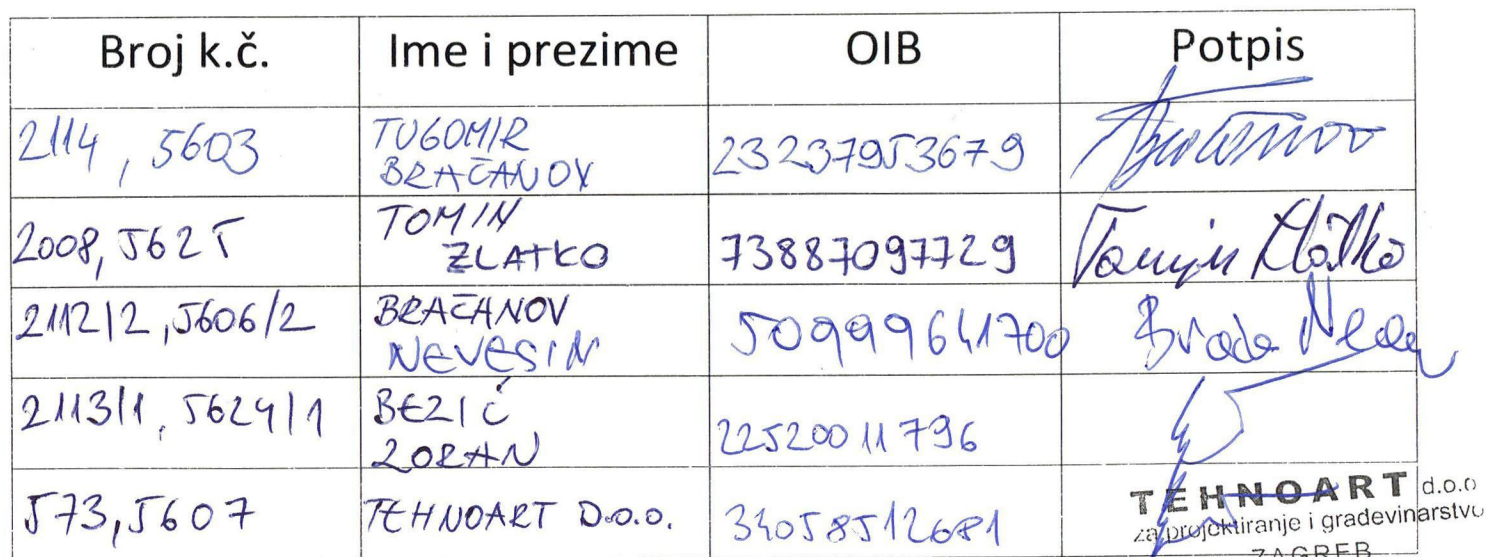 Broj k.č. Ime i prezime OIB Potpis
2114, 5603 TUGOMIR BRAČANOV 23237953679
2008, 5625 TOMIN ZLATKO 73887097729 Tomin Zlatko
2112/2, 5606/2 BRAČANOV NEVESIN 50999641700
2113/1, 5624/1 BEZIĆ ZORAN 22520011796
573, 5607 TEHNOART D.o.o. 34058512681
TEHNOART d.o.o
za projektiranje i građevinarstvo
ZAGREB